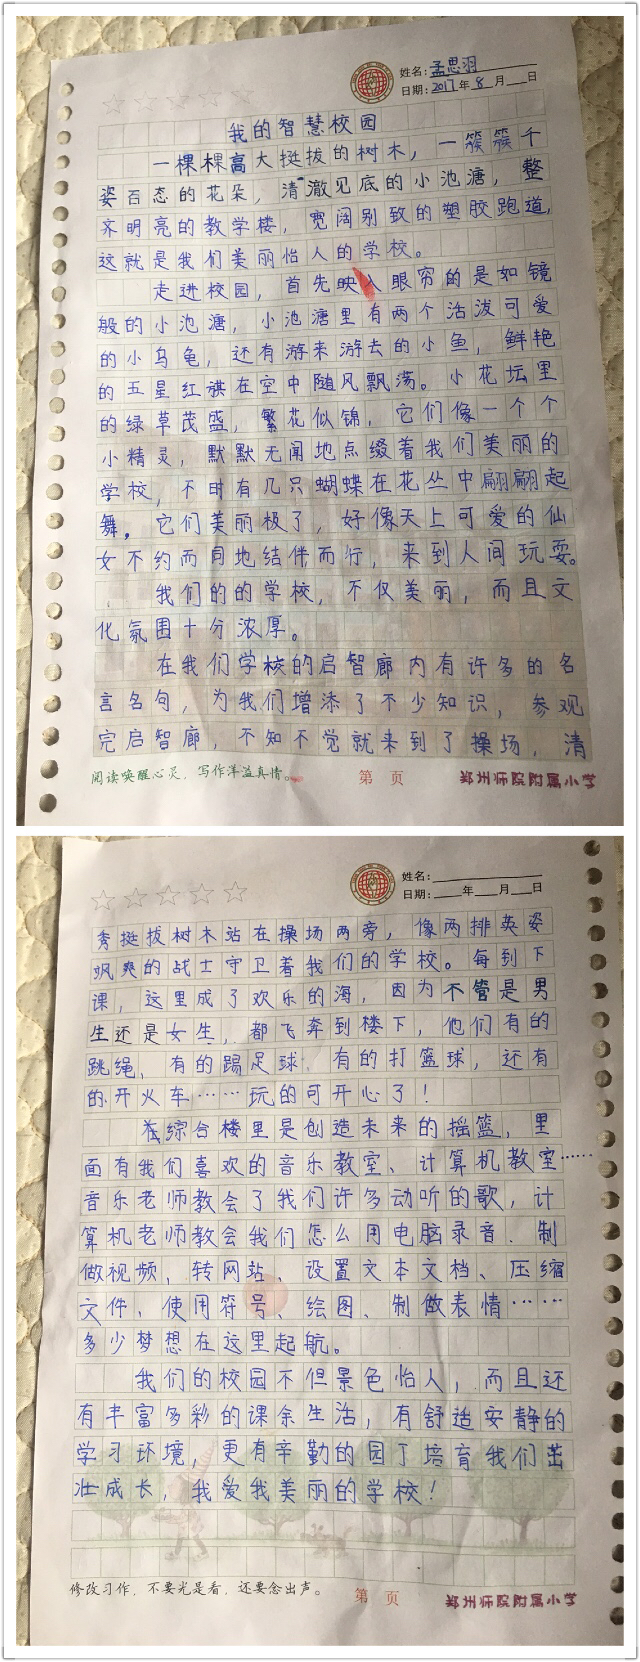 姓名:孟思羽
日期:2017年8月 日
我的智慧校园
一棵棵高大挺拔的树木，一簇簇千
姿百态的花朵，清澈见底的小池溏，整
齐明亮的教学楼，宽阔别致的塑胶跑道，
这就是我们美丽怡人的学校。
走进校园，首先映入眼帘的是如镜
般的小池溏，小池溏里有两个活泼可爱
的小乌龟，还有游来游去的小鱼，鲜艳
的五星红旗在空中随风飘荡。小花坛里
的绿草茂盛，繁花似锦，它们像一个个
小精灵，默默无闻地点缀着我们美丽的
学校，不时有几只蝴蝶在花丛中翩翩起
舞。它们美丽极了，好像天上可爱的仙
女不约而同地结伴而行，来到人间玩耍。
我们的的学校，不仅美丽，而且文
化氛围十分浓厚。
在我们学校的启智廊内有许多的名
言名句，为我们增添了不少知识，参观
完启智廊，不知不觉就来到了操场，清
阅读唤醒心灵，写作洋溢真情。 第 页 郑州师院附属小学
姓名:
日期: 年 月 日
秀挺拔树木站在操场两旁，像两排英姿
飒爽的战士守卫着我们的学校。每到下
课，这里成了欢乐的海，因为不管是男
生还是女生，都飞奔到楼下，他们有的
跳绳，有的踢足球，有的打篮球，还有
的开火车……玩的可开心了！
在综合楼里是创造未来的摇篮，里
面有我们喜欢的音乐教室、计算机教室……
音乐老师教会了我们许多动听的歌，计
算机老师教会我们怎么用电脑录音、制
做视频，转网站、设置文本文档、压缩
文件、使用符号、绘图、制做表情……
多少梦想在这里起航。
我们的校园不但景色怡人，而且还
有丰富多彩的课余生活，有舒适安静的
学习环境，更有辛勤的园丁培育我们茁
壮成长，我爱我美丽的学校！
修改习作，不要光是看，还要念出声。 第 页 郑州师院附属小学